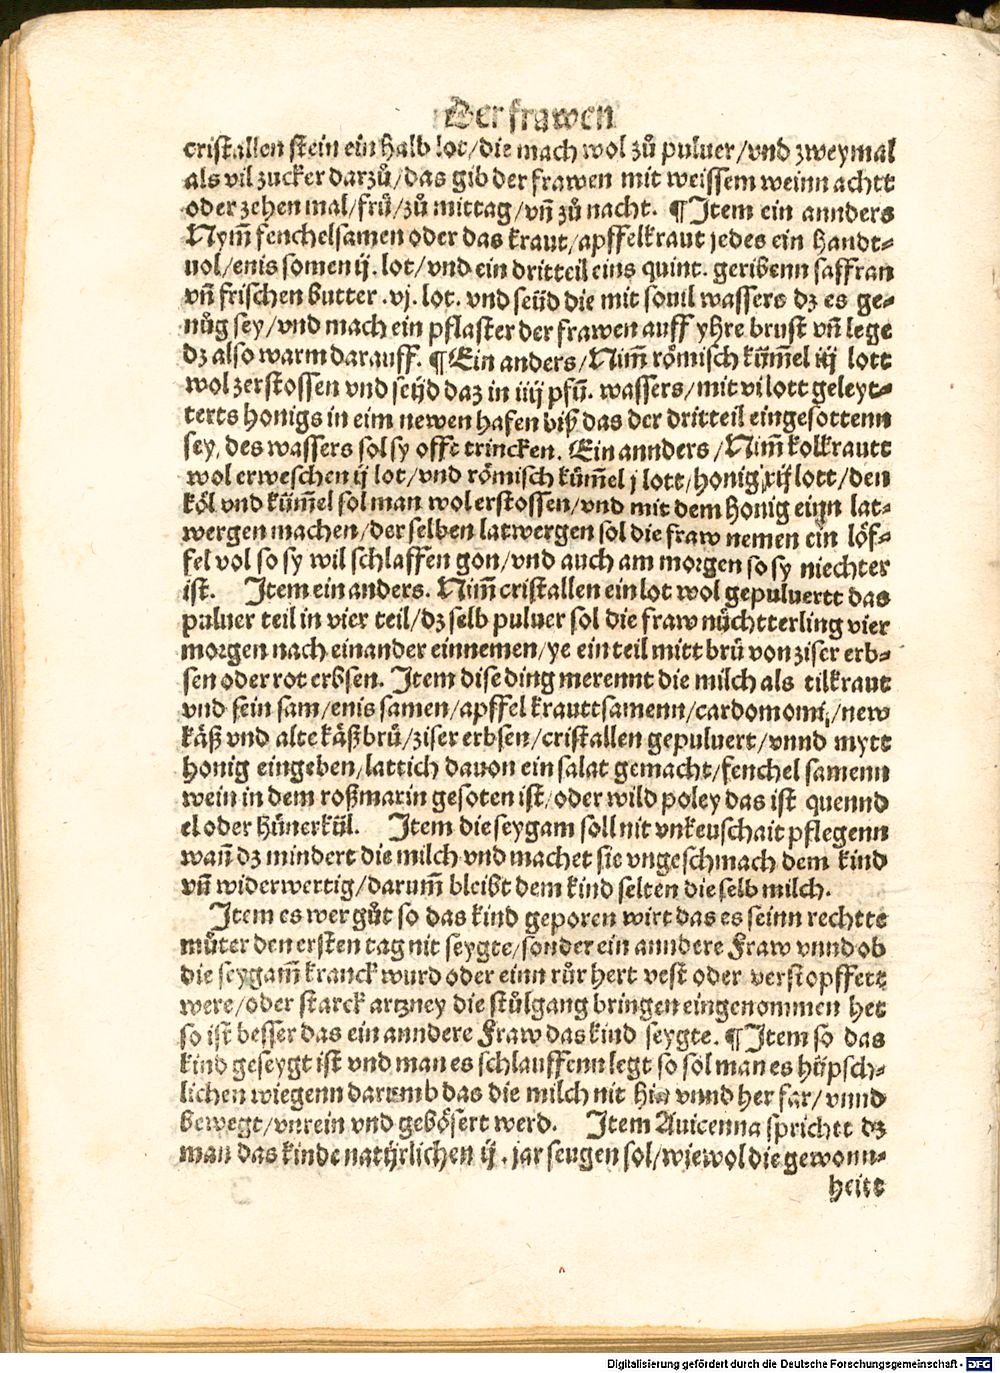 Der frawen
cristallen stein ein halb lot/die mach wol zů puluer/vnd zweymal
als vil zucker darzů/das gib der frawen mit weissem weinn achtt
oder zehen mal/frü/zů mittag/vñ zů nacht. ¶Item ein annders
Nym̃ fenchelsamen oder das kraut/apffelkraut jedes ein handt⸗
uol/enis somen ij. lot/vnd ein dritteil eins quint. geribenn saffran
vñ frischen butter .vj. lot. vnd seüd die mit souil wassers dz es ge⸗
nůg sey/vnd mach ein pflaster der frawen auff yhre brust vñ lege
dz also warm darauff. ¶Ein anders/Nim̃ römisch küm̃el iij lott
wol zerstossen vnd seüd daz in iiij pfũ. wassers/mit vi lott geleyt⸗
terts honigs in eim newen hafen biß das der dritteil eingesottenn
sey, des wassers sol sy offt trincken. Ein annders/Nim̃ kolkrautt
wol erweschen ij lot/vnd römisch küm̃el j lott/honig xij lott/den
köl vnd küm̃el sol man wol erstossen/vnd mit dem honig einn lat⸗
wergen machen/der selben latwergen sol die fraw nemen ein löf⸗
fel vol so sy wil schlaffen gon/vnd auch am morgen so sy niechter
ist. Item ein anders. Nim̃ cristallen ein lot wol gepuluertt das
puluer teil in vier teil/dz selb puluer sol die fraw nüchtterling vier
morgen nach einander einnemen/ye ein teil mitt brü von ziser erb⸗
sen oder rot erbsen. Item dise ding merennt die milch als tilkraut
vnd sein sam/enis samen/apffel krauttsamenn/cardomomi/new
käß vnd alte käßbrü/ziser erbsen/cristallen gepuluert/vnnd mytt
honig eingeben/lattich dauon ein salat gemacht/fenchel samenn
wein in dem roßmarin gesoten ist/oder wild poley das ist quennd
el oder hünerkül. Item die seygam soll nit vnkeuschait pflegenn
wañ dz mindert die milch vnd machet sie vngeschmach dem kind
vñ widerwertig/darum̃ bleibt dem kind selten die selb milch.
Item es wer gůt so das kind geporen wirt das es seinn rechtte
můter den ersten tag nit seygte/sonder ein anndere Fraw vnnd ob
die seygam̃ kranck wurd oder einn růr hert vest oder verstopffett
were/oder starck artzney die stůlgang bringen eingenommen het
so ist besser das ein anndere Fraw das kind seygte. ¶Item so das
kind geseygt ist vnd man es schlauffenn legt so sol man es hüpsch⸗
lichen wiegenn darumb das die milch nit hin vnnd her far/vnnd
bewegt/vnrein vnd gebösert werd. Item Auicenna sprichtt dz
man das kinde natürlichen ij. jar seugen sol/wiewol die gewonn⸗
heitt
Digitalisierung gefördert durch die Deutsche Forschungsgemeinschaft - DFG